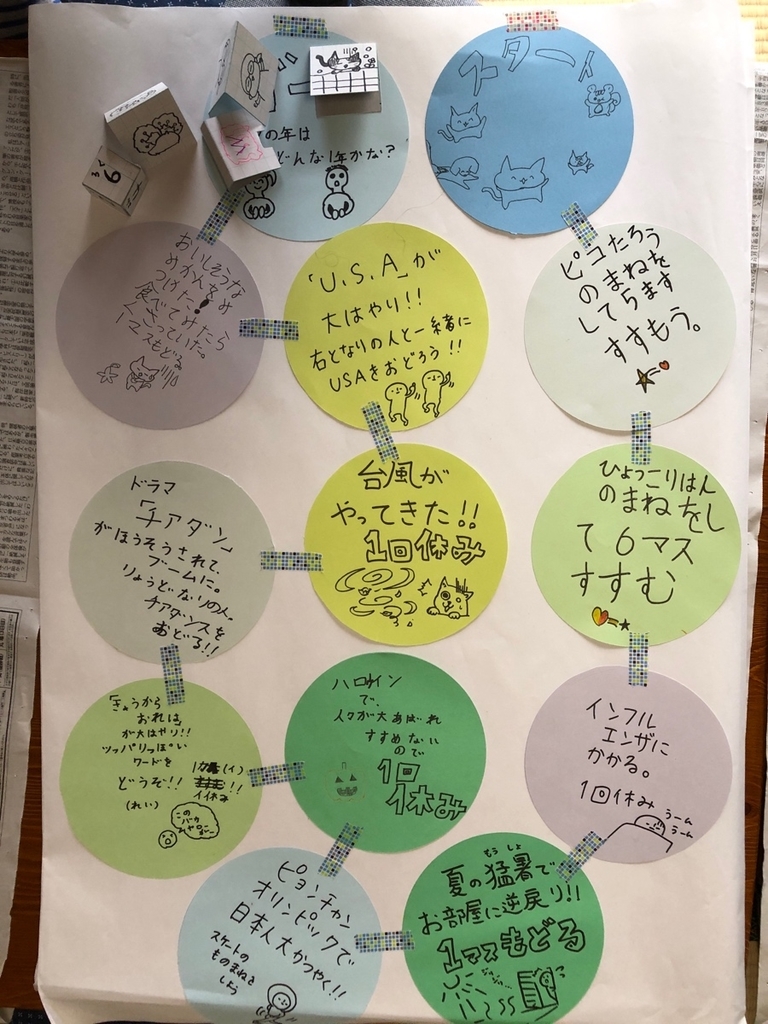 スタート
ピコたろう
のまねを
してらます
すすもう。
ひょっこりはん
のまねをし
て6マス
すすむ
インフル
エンザに
かかる。
1回休み
うーム
うーム
夏の猛暑で
もうしょ
お部屋に逆戻り!!
1マスもどる
ピョンチャン
オリンピックで
日本人大かつやく!!
スケートの
ものまねを
しよう
ハロウィン
で、
人々が大あばれ
すすめない
ので
1回
休み
「きょうから
おれは」
が大はやり!!
ツッパリっぽい
ワードを
どうぞ!!
(れい)
このバカ
ドラマ
「チアダン」
がほうそうされて、
ブームに。
りょうどなりの人。
チアダンスを
おどる!!
台風が
やってきた!!
1回休み
「U.S.A」が
大はやり!!
右となりの人と一緒に
USAをおどろう!!
おいしそうな
めかんをみ
つけた!
食べてみたら
くさっていた。
1マスもどる
の年は
どんな1年かな?
6